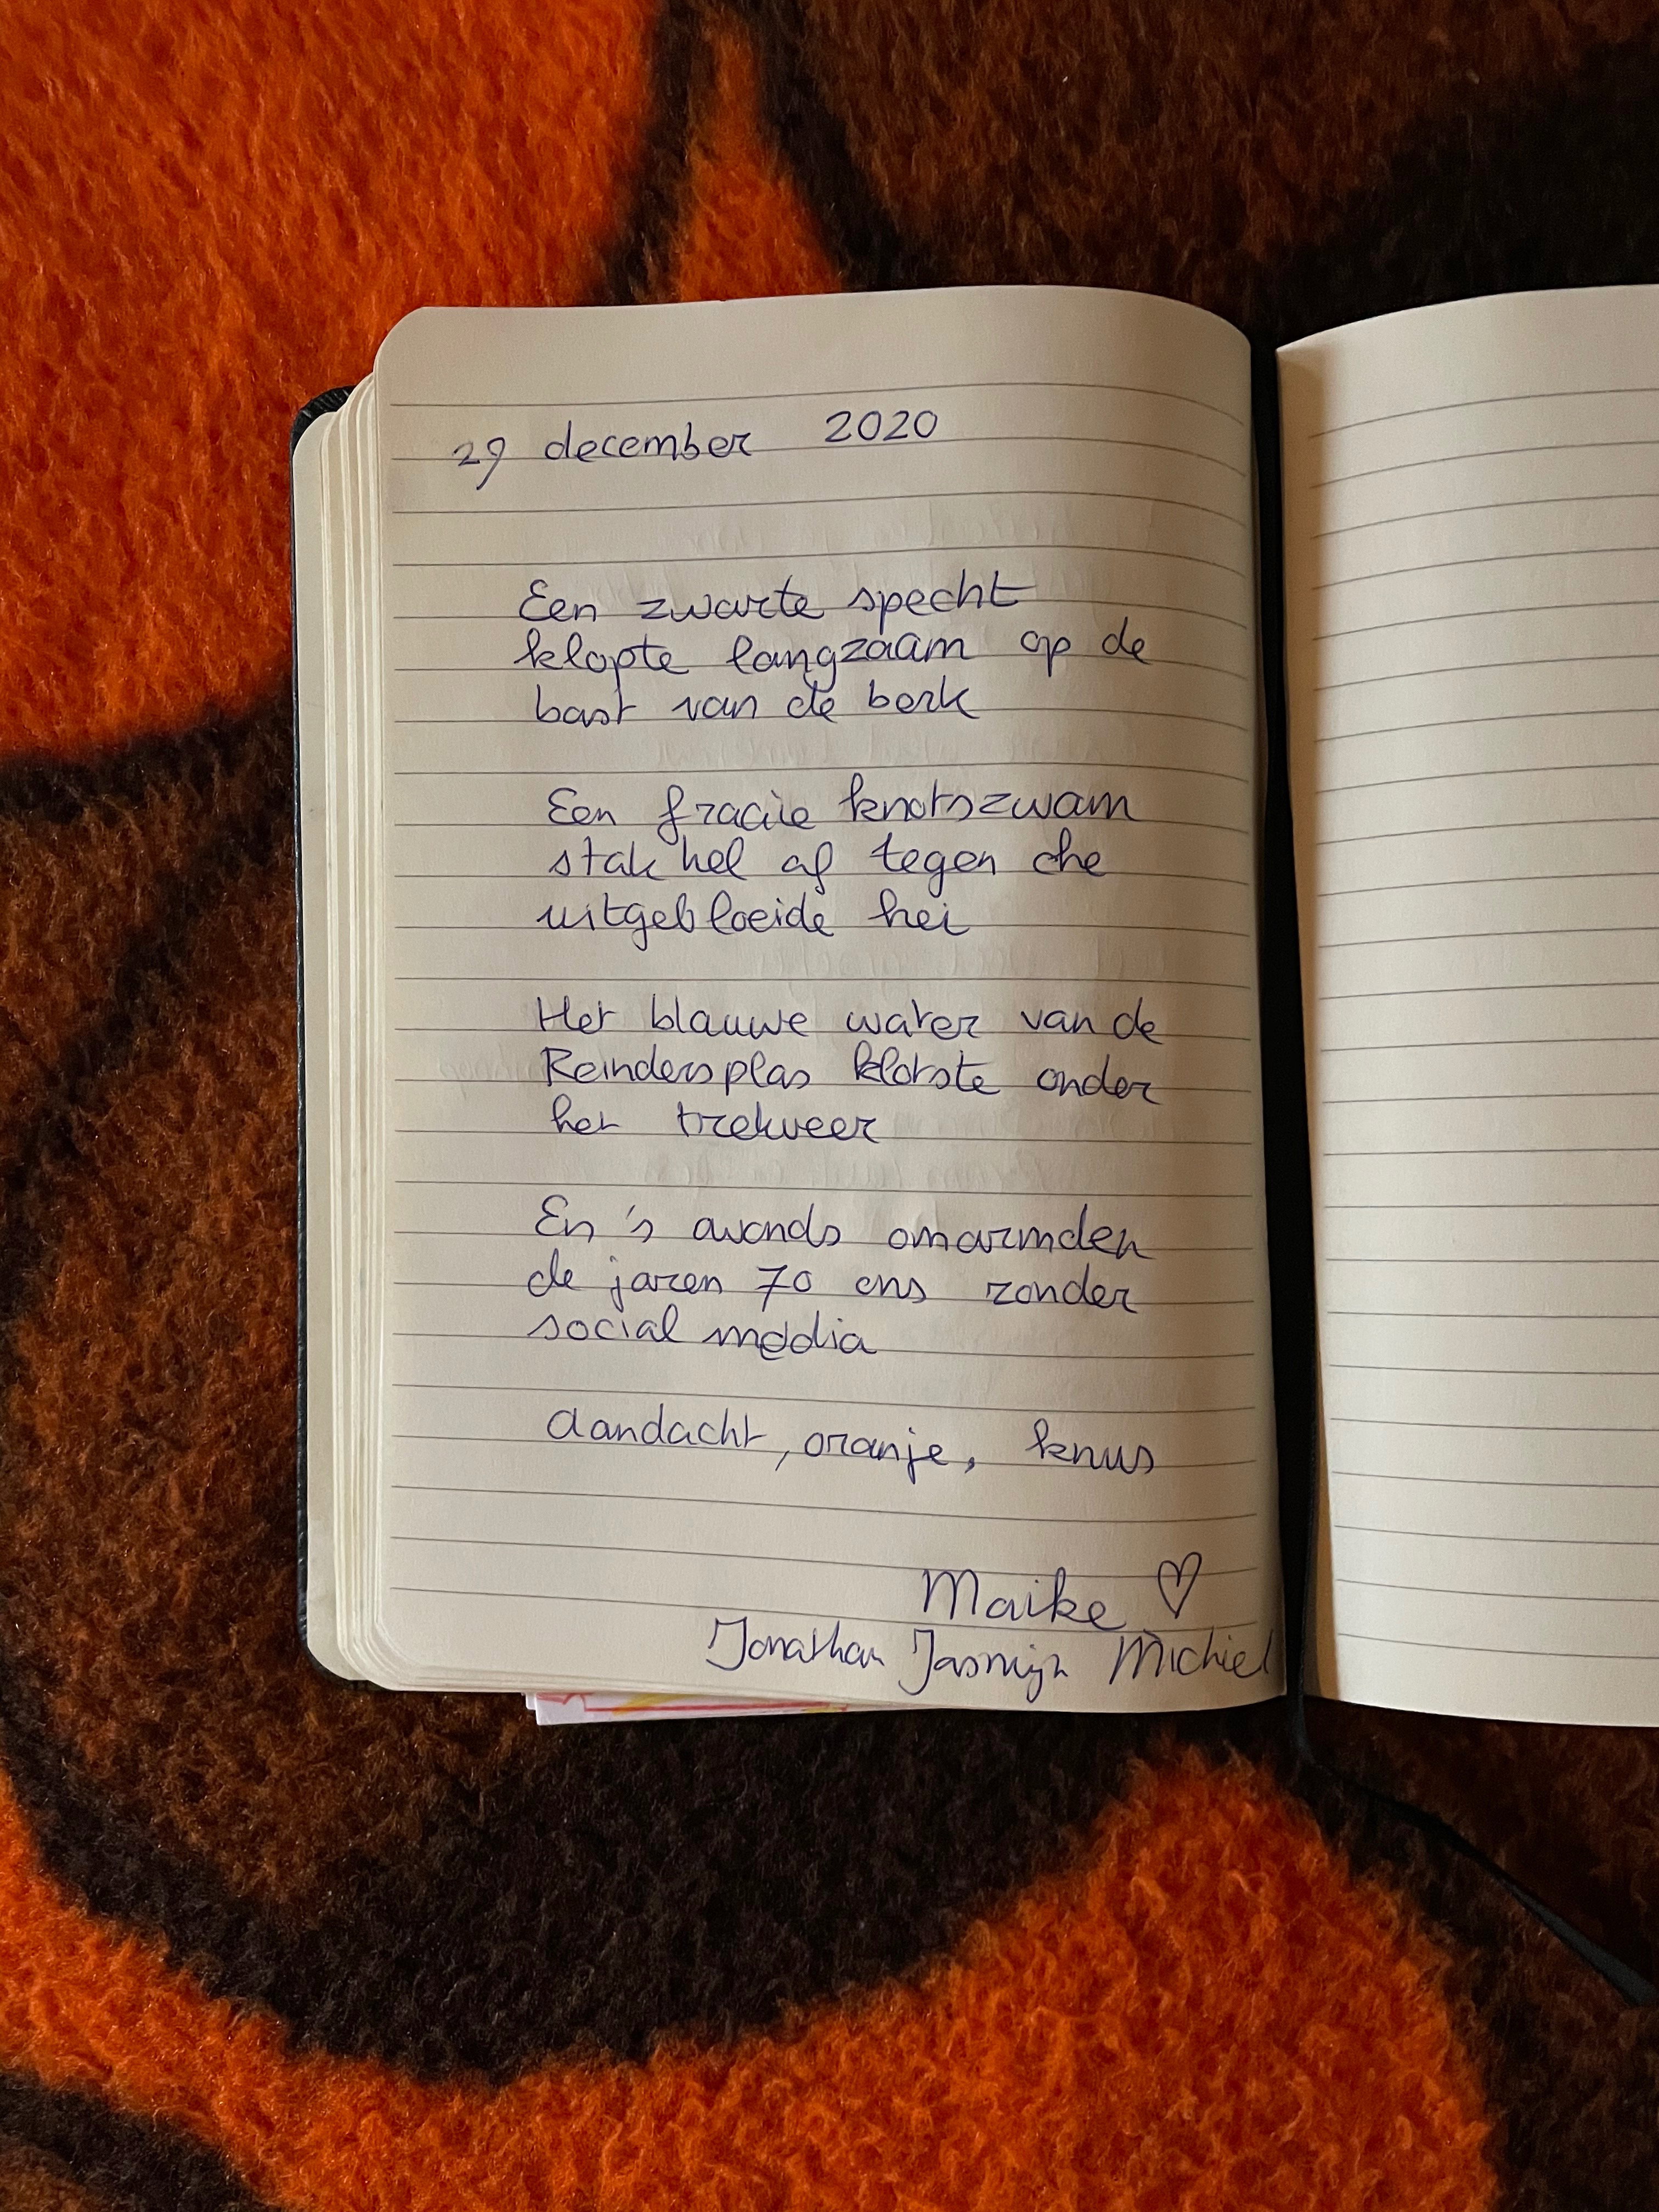 29 december 2020
Een zwarte specht
klopte langzaam op de
bast van de berk
Een fracile knotszwam
stak hel af tegen de
uitgebloeide hei
Het blauwe water van de
Reindersplas klotste onder
het trekveer
En 's avonds omarmden
de jaren 70 ons zonder
social media
Aandacht, oranje, knus
Maike ♡
Jonathan Jasmijn Michiel